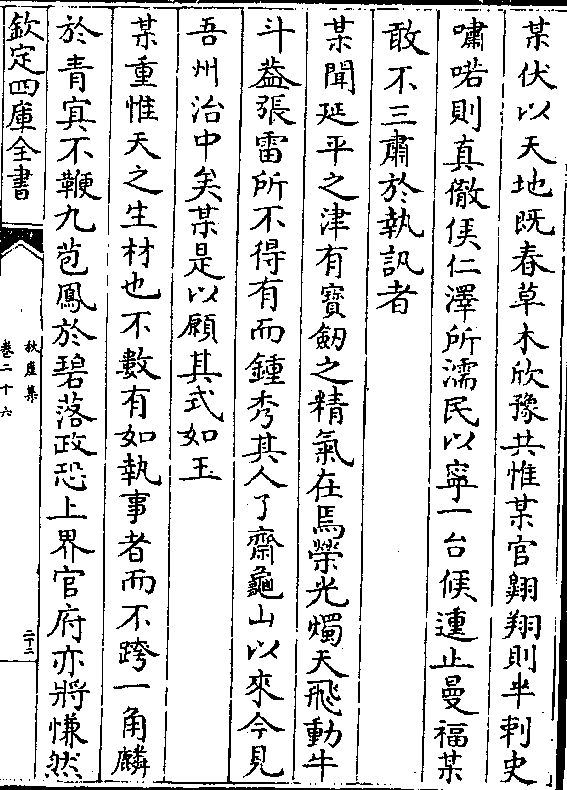 某伏以天地既春草木欣豫共惟某官翺翔則半刺史
嘯喏則真儌侯仁澤所濡民以寧一台候連止曼福某
敢不三肅於執訊者
某聞延平之津有寳劒之精氣在焉榮光燭天飛動牛
斗葢張雷所不得有而鍾秀其人了齋龜山以來今見
吾州治中矣某是以願其式如玉
某重惟天之生材也不數有如執事者而不跨一角麟
於青㝠不鞭九苞鳳於碧落政恐上界官府亦將慊然
欽定四庫全書
秋崖集
卷二十六
二十二